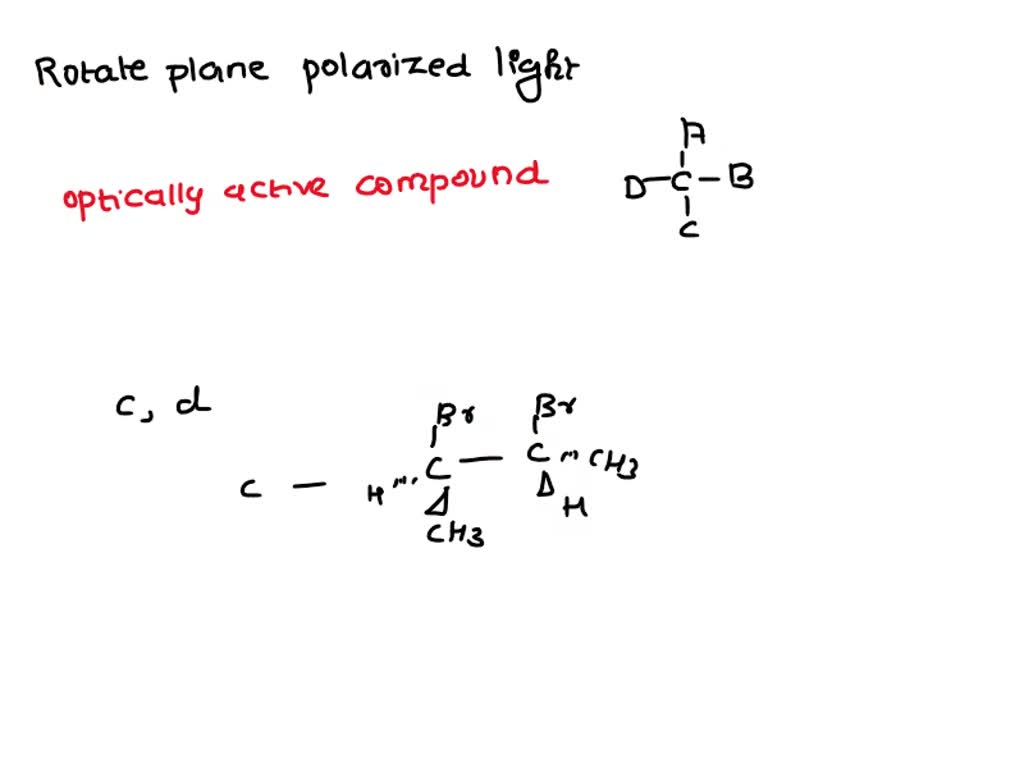 Rotate plane polarized light
A
optically active compound D-C-B
C
c, d
Br Br
C — H C — C CH3
H
CH3